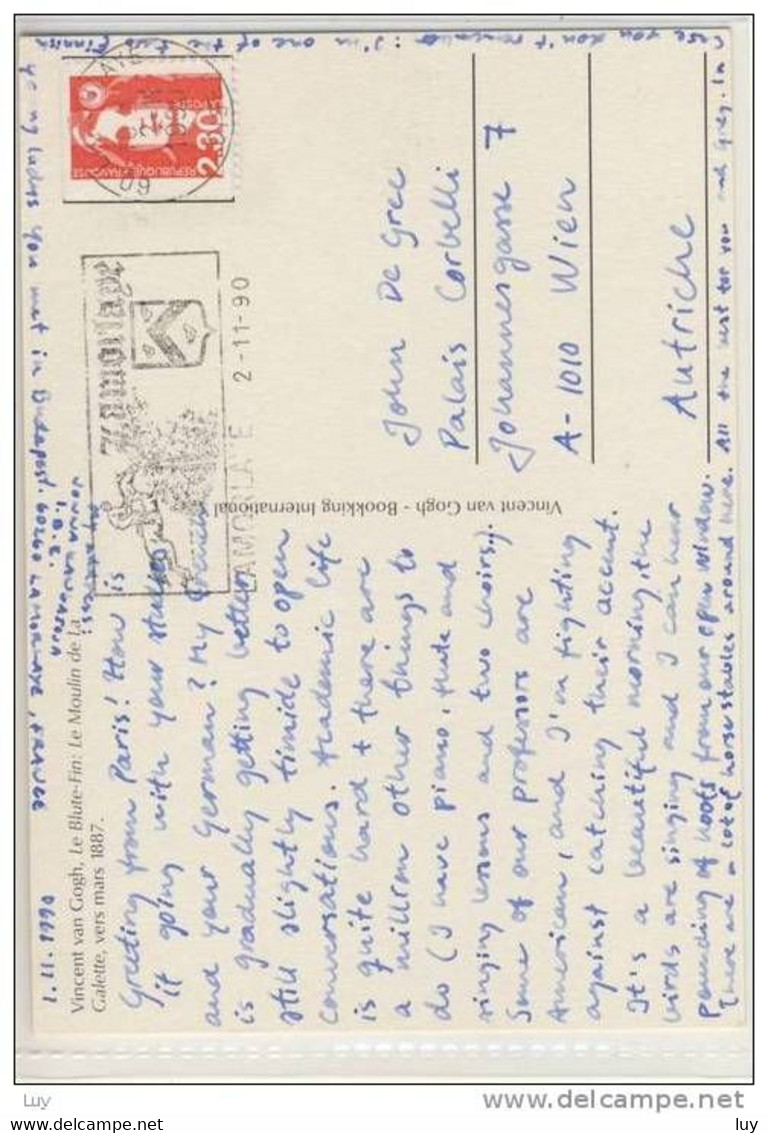 1.11.1990
Vincent van Gogh, Le Blute-Fin: Le Moulin de La
Galette, vers mars 1887.
Greeting from Paris! How is
it going with your studies
and your German? My French
is gradually getting better,
still slightly timide to open
conversations. Academic life
is quite hard + there are
a million other things to
do (I have piano, flute and
singing lessons and two choirs).
Some of our professors are
American, and I'm fighting
against catching their accent.
It's a beautiful morning, the
birds are singing and I can hear
pounding of hoofs from our open window.
There are a lot of horse stables around here. All the best for you and Greg. In
case you don't remember: I'm one of the two Finnish
young ladies you met in Budapest.
my address:
I.B.E.
60260 LAMORLAYE, FRANCE
Vincent van Gogh - Bookking International
LA POSTE
2,30
REPUBLIQUE FRANÇAISE
Lamorlaye
LAMORLAYE
2-11-90
John De Gree
Palais Corbelli
Johannesgasse 7
A-1010 Wien
Autriche
Luy
www.delcampe.net
luy